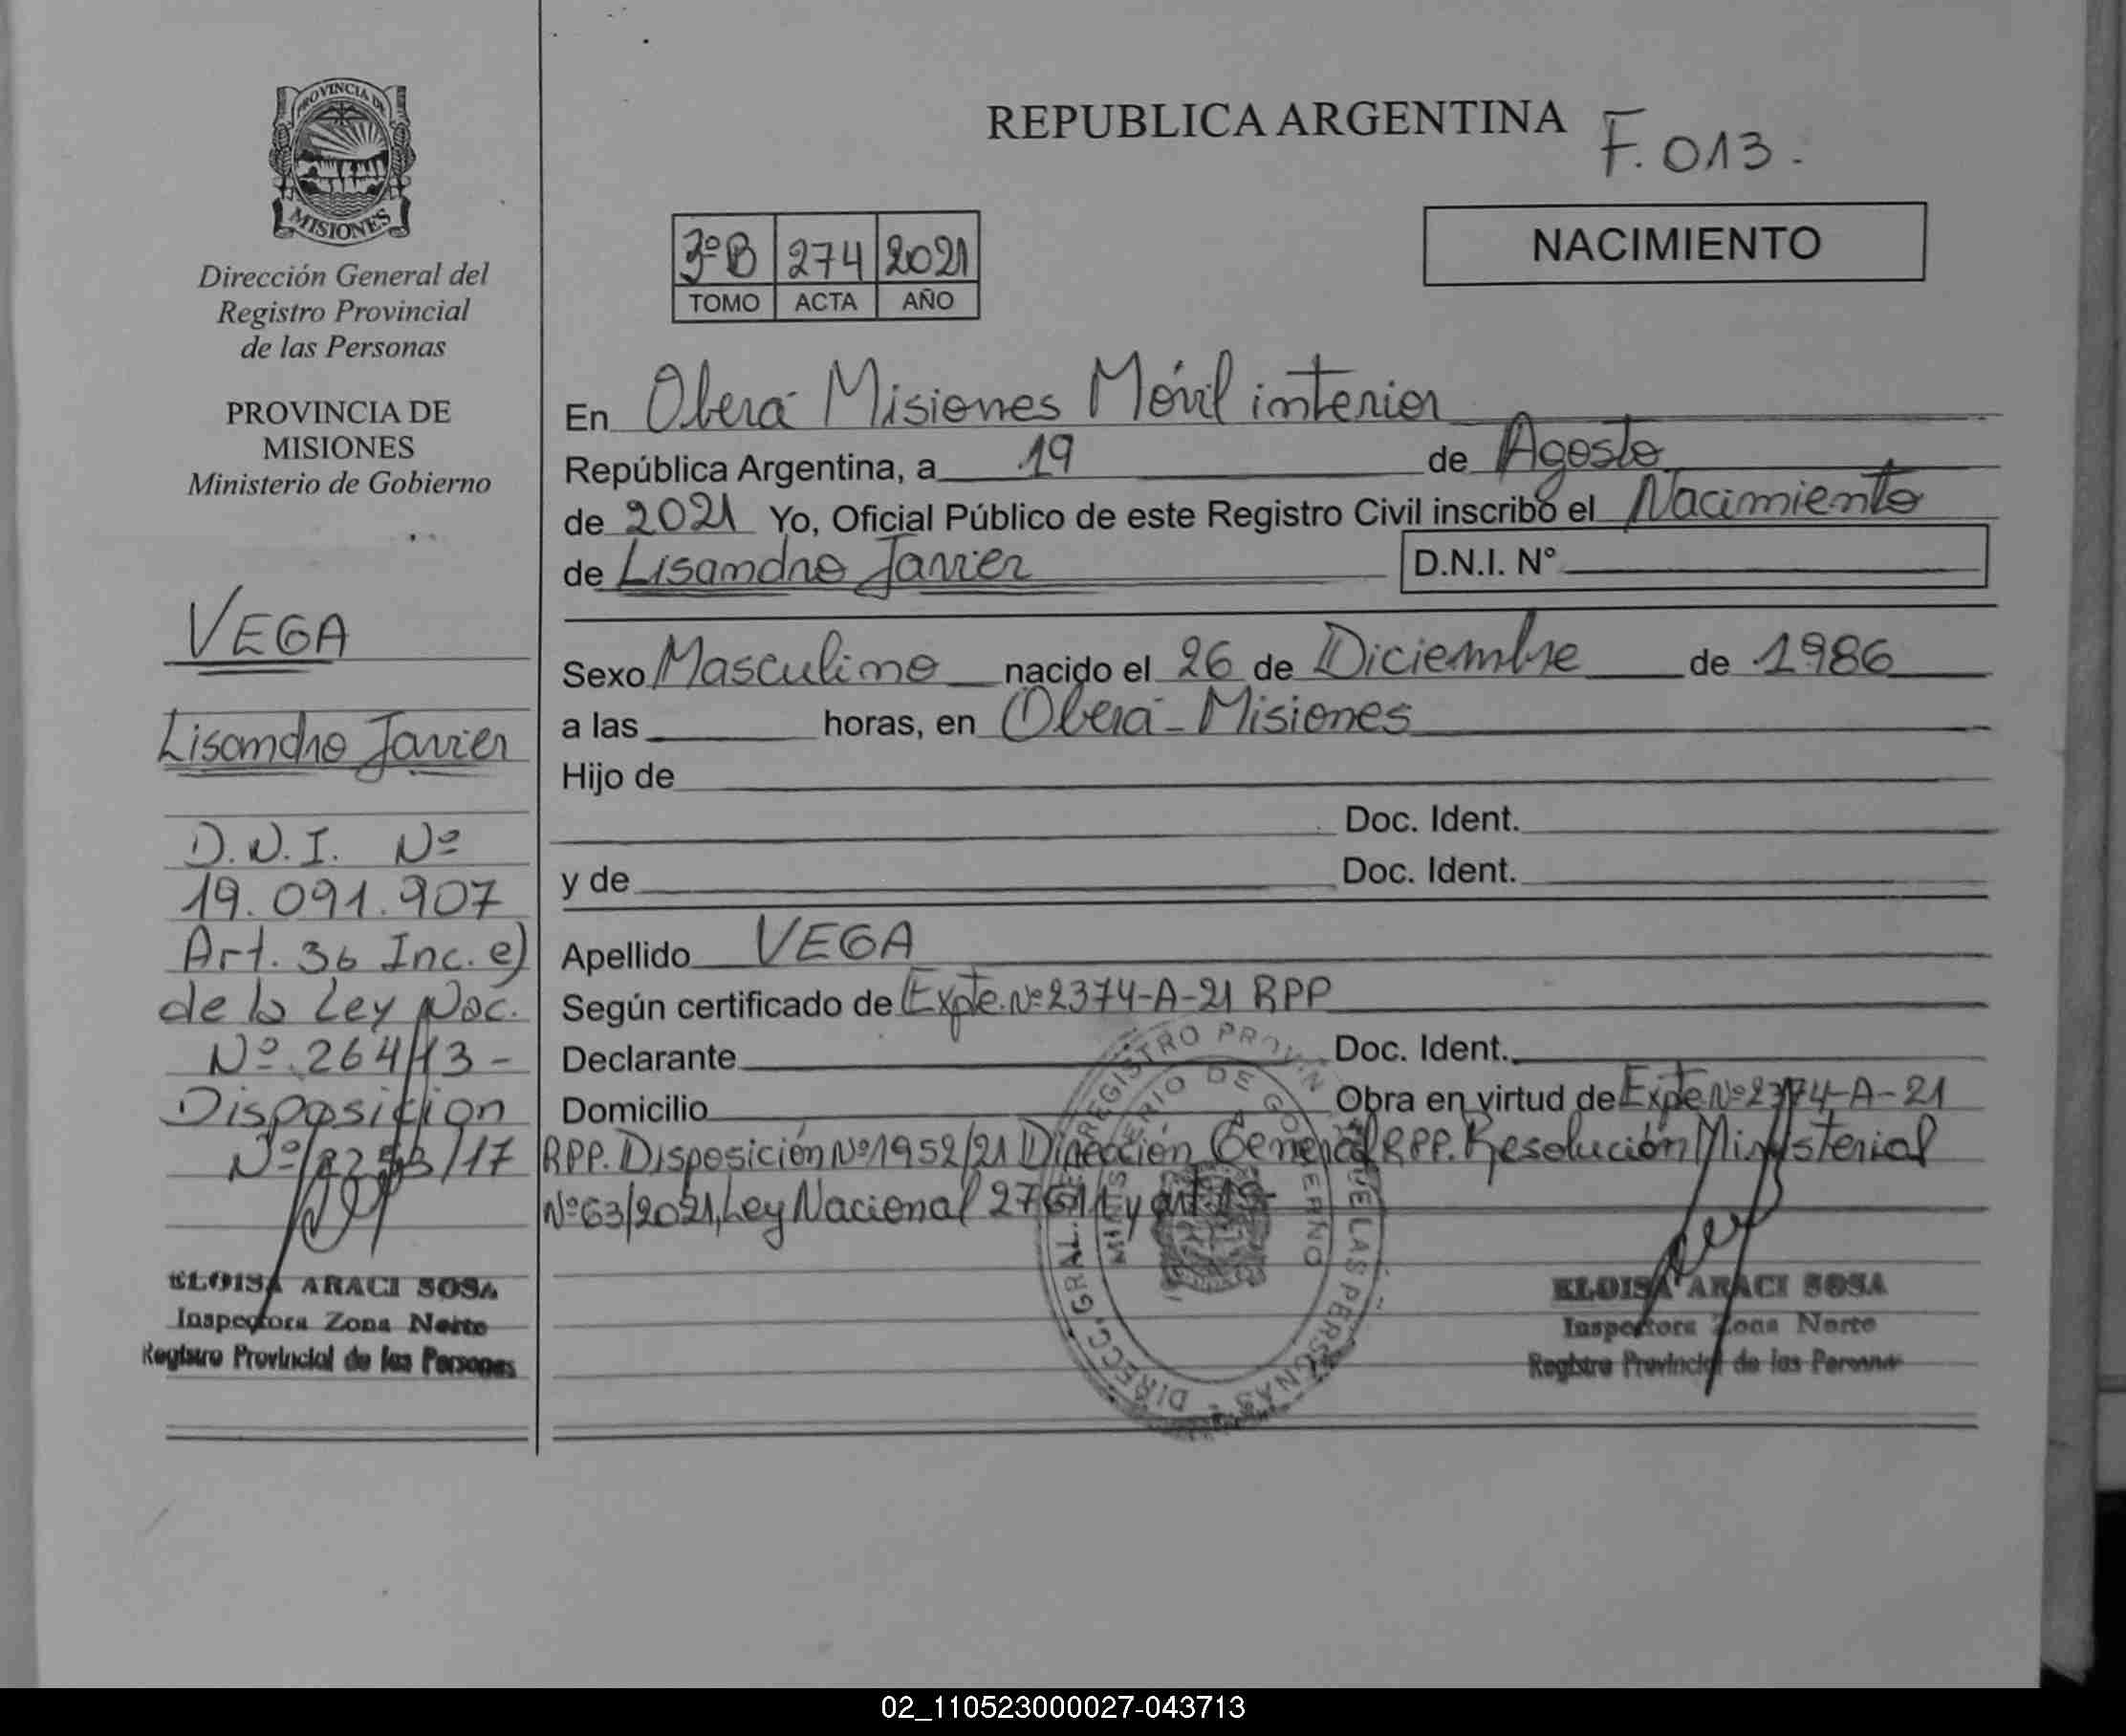 PROVINCIA DE
MISIONES
Dirección General del
Registro Provincial
de las Personas
PROVINCIA DE
MISIONES
Ministerio de Gobierno
VEGA
Lisandro Javier
D.N.I. Nº
19.091.907
Art. 36 Inc. e)
de la Ley Nac.
Nº 264/13-
Disposición
/17
ELOISA ARACI SOSA
Inspectora Zona Norte
Registro Provincial de las Personas
REPUBLICA ARGENTINA
F. 013.
NACIMIENTO
3ºB 274 2021
TOMO ACTA AÑO
En Oberá Misiones Móvil interior
República Argentina, a 19 de Agosto
de 2021 Yo, Oficial Público de este Registro Civil inscribo el Nacimiento
de Lisandro Javier D.N.I. Nº
Sexo Masculino nacido el 26 de Diciembre de 1986
a las horas, en Oberá - Misiones
Hijo de
Doc. Ident.
y de Doc. Ident.
Apellido VEGA
Según certificado de Expte. Nº 2374-A-21 RPP
Declarante Doc. Ident.
Domicilio Obra en virtud de Expte Nº 2374-A-21
RPP. Disposición Nº 1952/21 Dirección General RPP. Resolución Ministerial
Nº 63/2021, Ley Nacional 27611 y art.
DIRECC. GRAL. REGISTRO PROVIN DE LAS PERSONAS
MINISTERIO DE GOBIERNO
ELOISA ARACI SOSA
Inspectora Zona Norte
Registro Provincial de las Personas
02_110523000027-043713